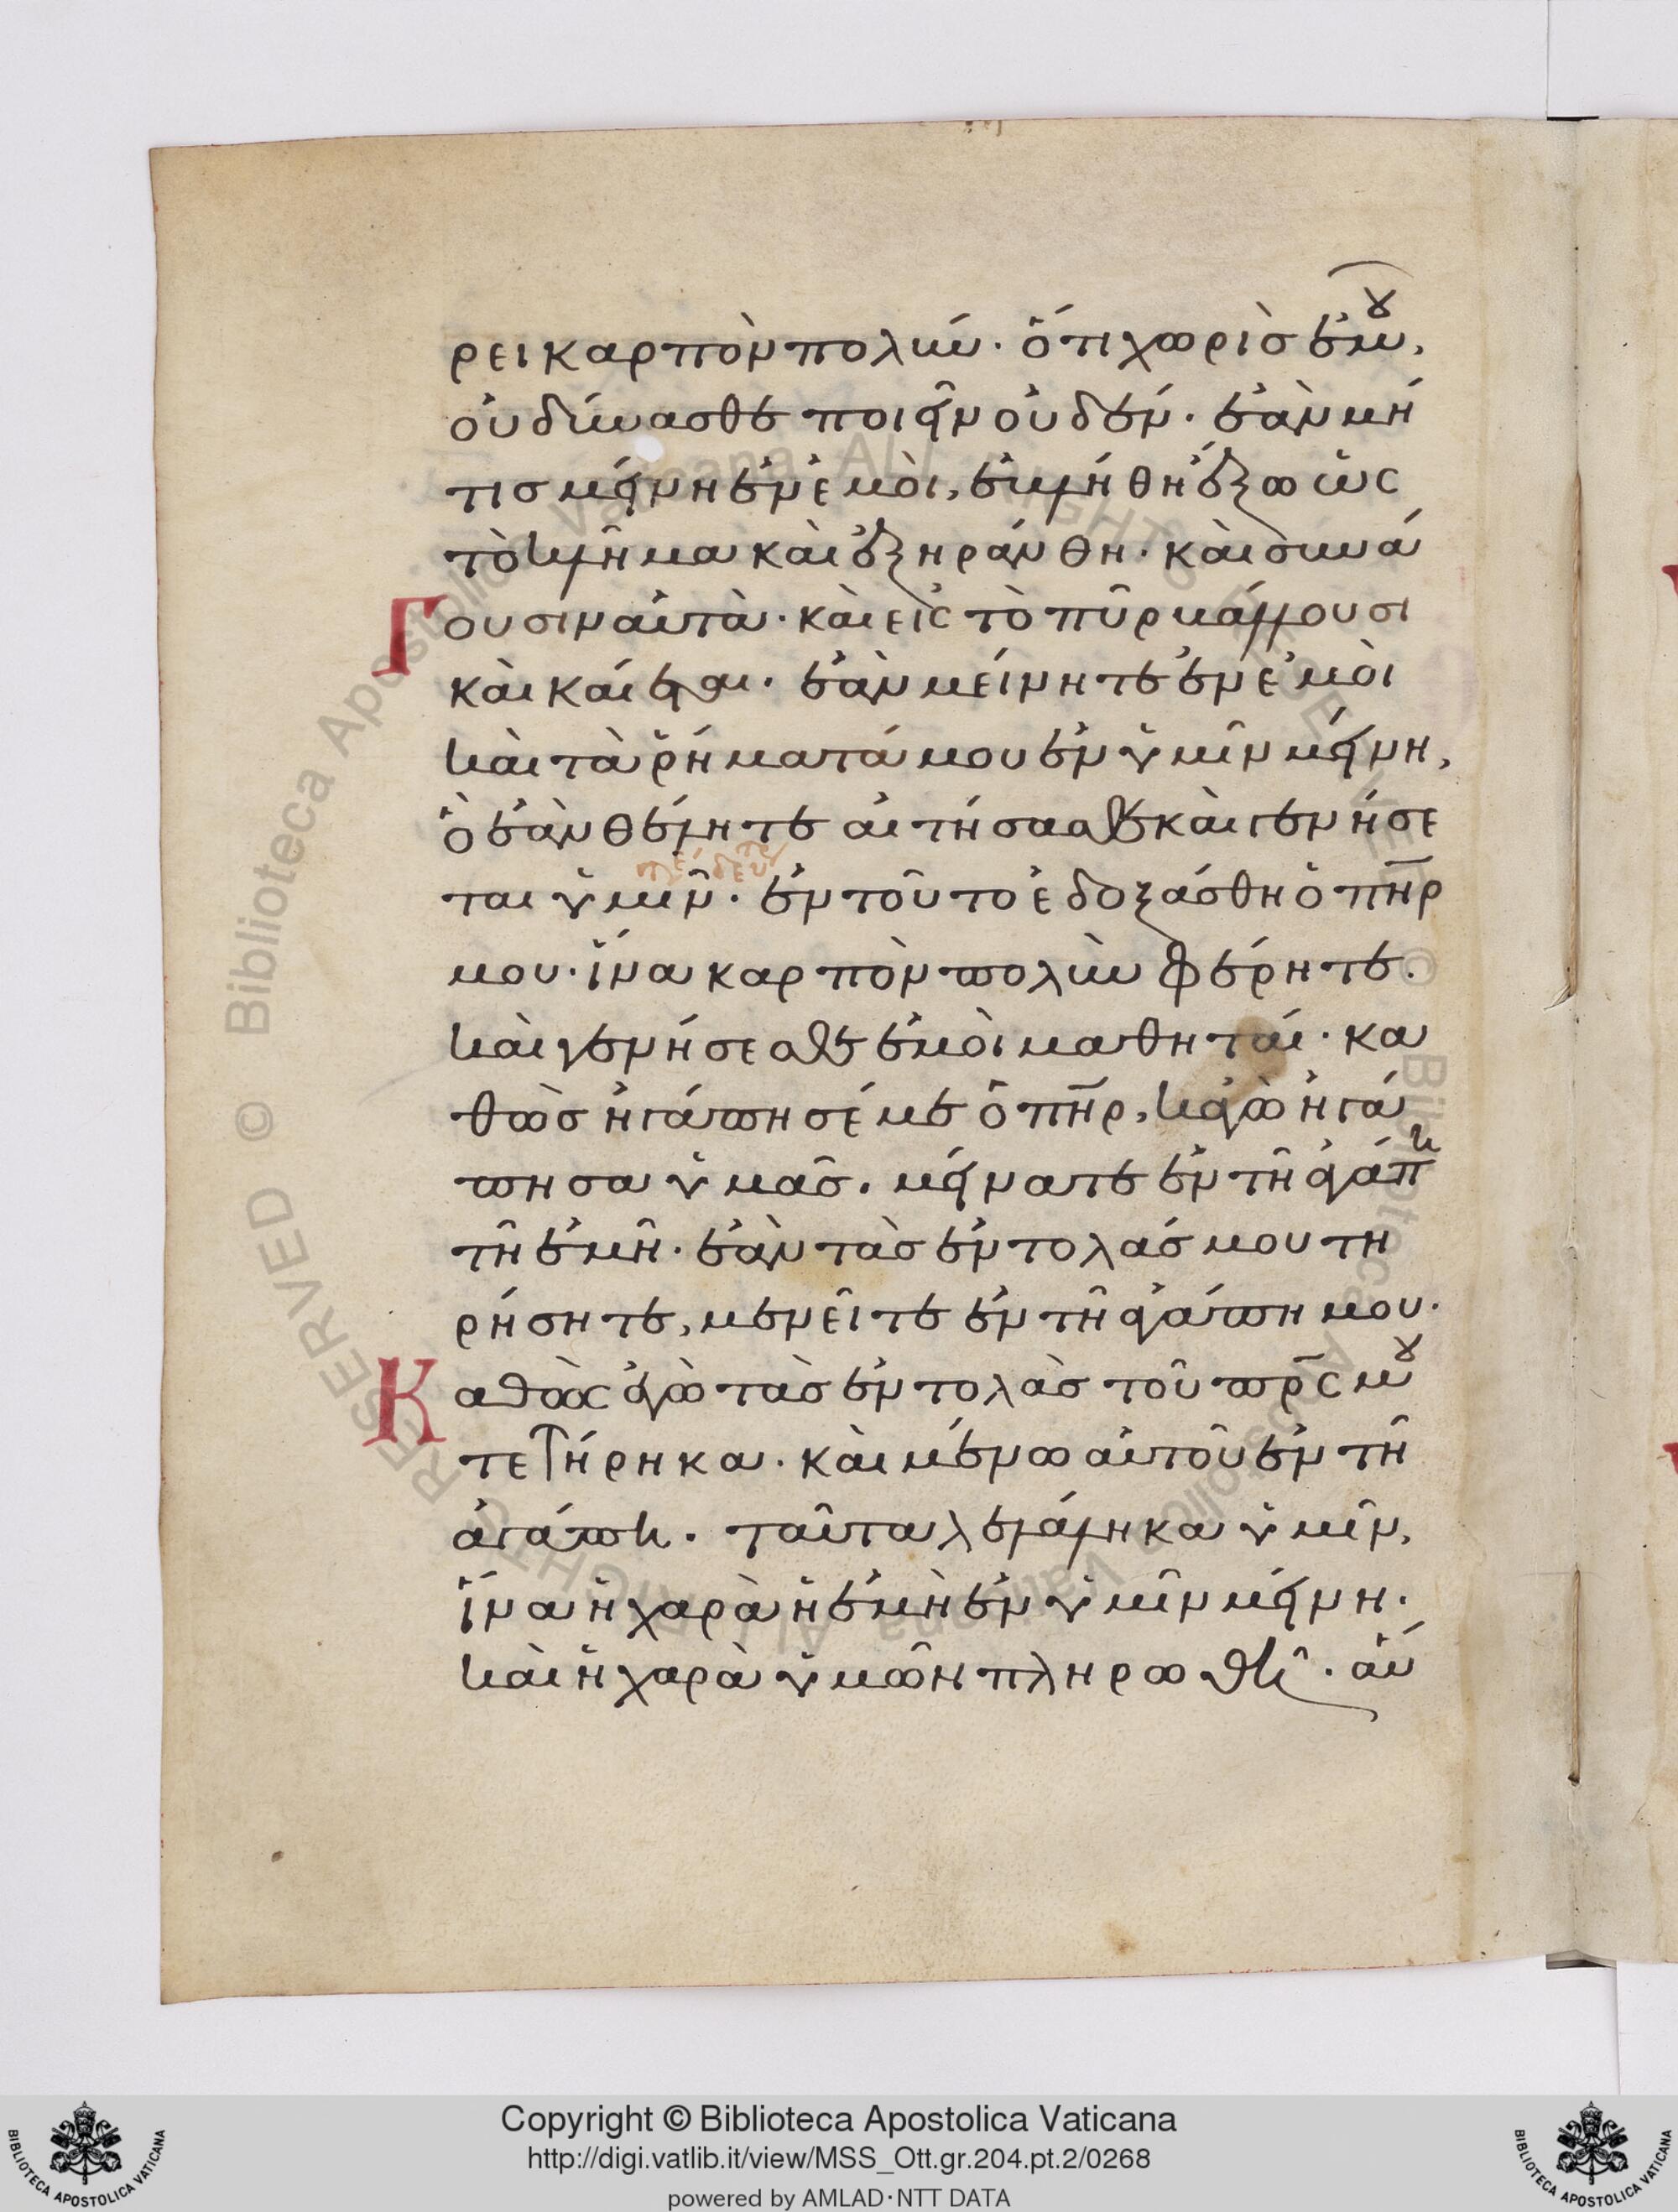 ρει καρπὸν πολύν· ὅτι χωρὶσ ἐμοῦ,
οὐ δύνασθε ποιεῖν οὐδέν· ἐὰν μή
τισ μείνη ἐν ἐμοὶ, ἐβλήθη ἔξω ὡς
τὸ κλῆμα καὶ ἐξηράνθη· καὶ συνά
Γουσιν αὐτὰ· καὶ εἰς τὸ πῦρ βάλλουσι
καὶ καίεται· ἐὰν μείνητε ἐν ἐμοὶ
καὶ τὰ ῥήματά μου ἐν ὑμῖν μείνη,
ὃ ἐὰν θέλητε αἰτήσασθε καὶ γενήσε
ται ὑμῖν· ἐν τούτο ἐδοξάσθη ὁ πηρ
μου· ἵνα καρπὸν πολὺν φέρητε.
καὶ γενήσεσθε ἐμοὶ μαθηταί· κα
θὼσ ἠγάπησέ με ὁ πηρ, καγὼ ἠγά
πησα ὑμᾶσ. μείνατε ἐν τῆ ἀγάπη
τῆ ἐμῆ· ἐὰν τὰσ ἐντολάσ μου τη
ρήσητε, μενεῖτε ἐν τῆ ἀγάπη μου·
Καθὼς ἐγὼ τὰσ ἐντολὰσ τοῦ πρς μου
τετήρηκα· καὶ μένω αὐτοῦ ἐν τῆ
ἀγάπη. ταῦτα λελάληκα ὑμῖν,
ἵνα ἡ χαρὰ ἡ ἐμὴ ἐν ὑμῖν μείνη.
καὶ ἡ χαρὰ ὑμῶν πληρωθῆ· αὕ
Copyright © Biblioteca Apostolica Vaticana
http://digi.vatlib.it/view/MSS_Ott.gr.204.pt.2/0268
powered by AMLAD·NTT DATA
BIBLIOTECA APOSTOLICA VATICANA
BIBLIOTECA APOSTOLICA VATICANA